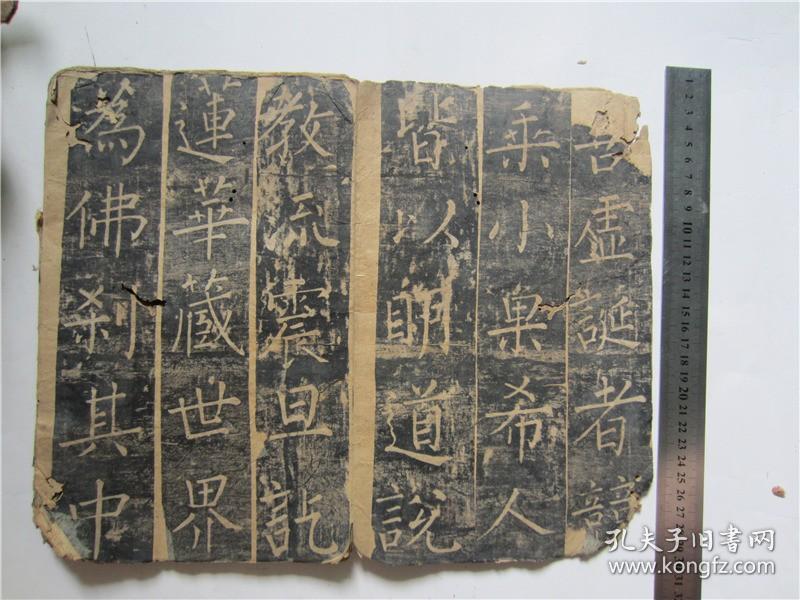 虛誕者
乘小果希人
皆以明道說
教流震旦訖
蓮華藏世界
爲佛刹其中
1 2 3 4 5 6 7 8 9 10 11 12 13 14 15 16 17 18 19 20 21 22 23 24 25 26 27 28 29 30 31 32
孔夫子旧书网
www.kongfz.com